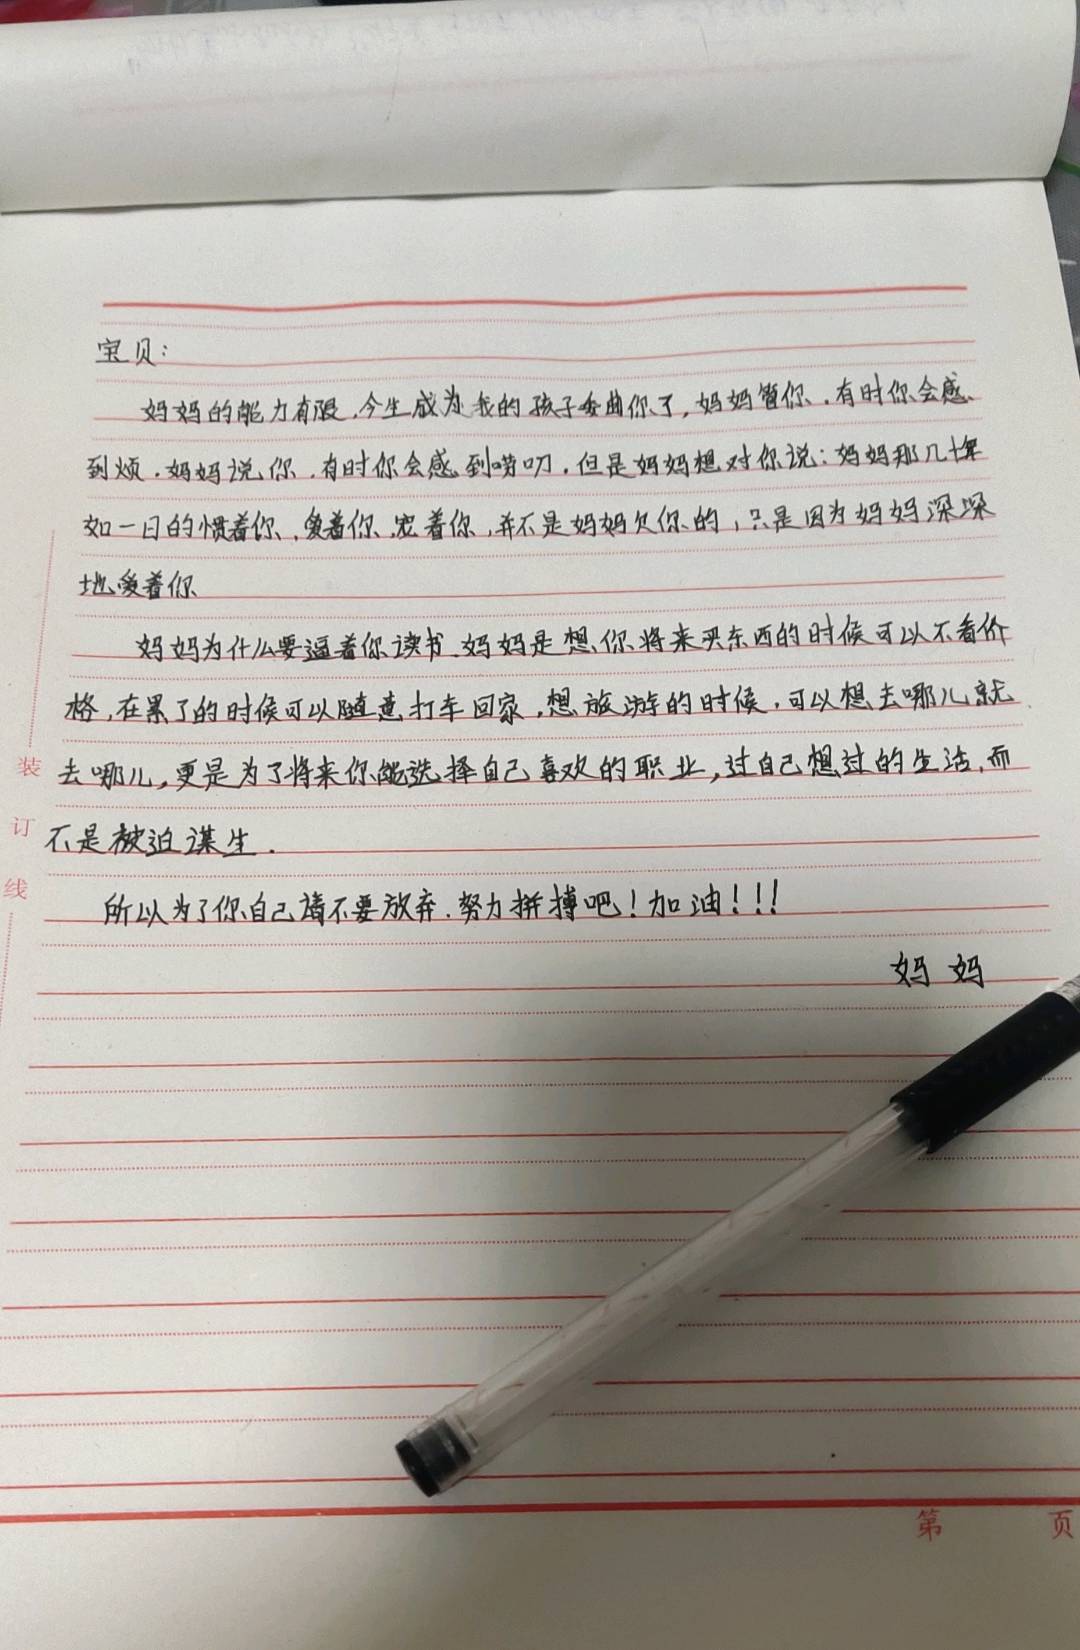 宝贝:
妈妈的能力有限,今生成为我的孩子委曲你了,妈妈管你,有时你会感
到烦,妈妈说你,有时你会感到唠叨,但是妈妈想对你说:妈妈那几十年
如一日的惯着你,爱着你,宠着你,并不是妈妈欠你的,只是因为妈妈深深
地爱着你
妈妈为什么要逼着你读书,妈妈是想你将来买东西的时候可以不看价
格,在累了的时候可以随意打车回家,想旅游的时候,可以想去哪儿就
去哪儿,更是为了将来你能选择自己喜欢的职业,过自己想过的生活,而
不是被迫谋生.
所以为了你自己请不要放弃.努力拼搏吧!加油!!!
妈妈
装
订
线
第 页